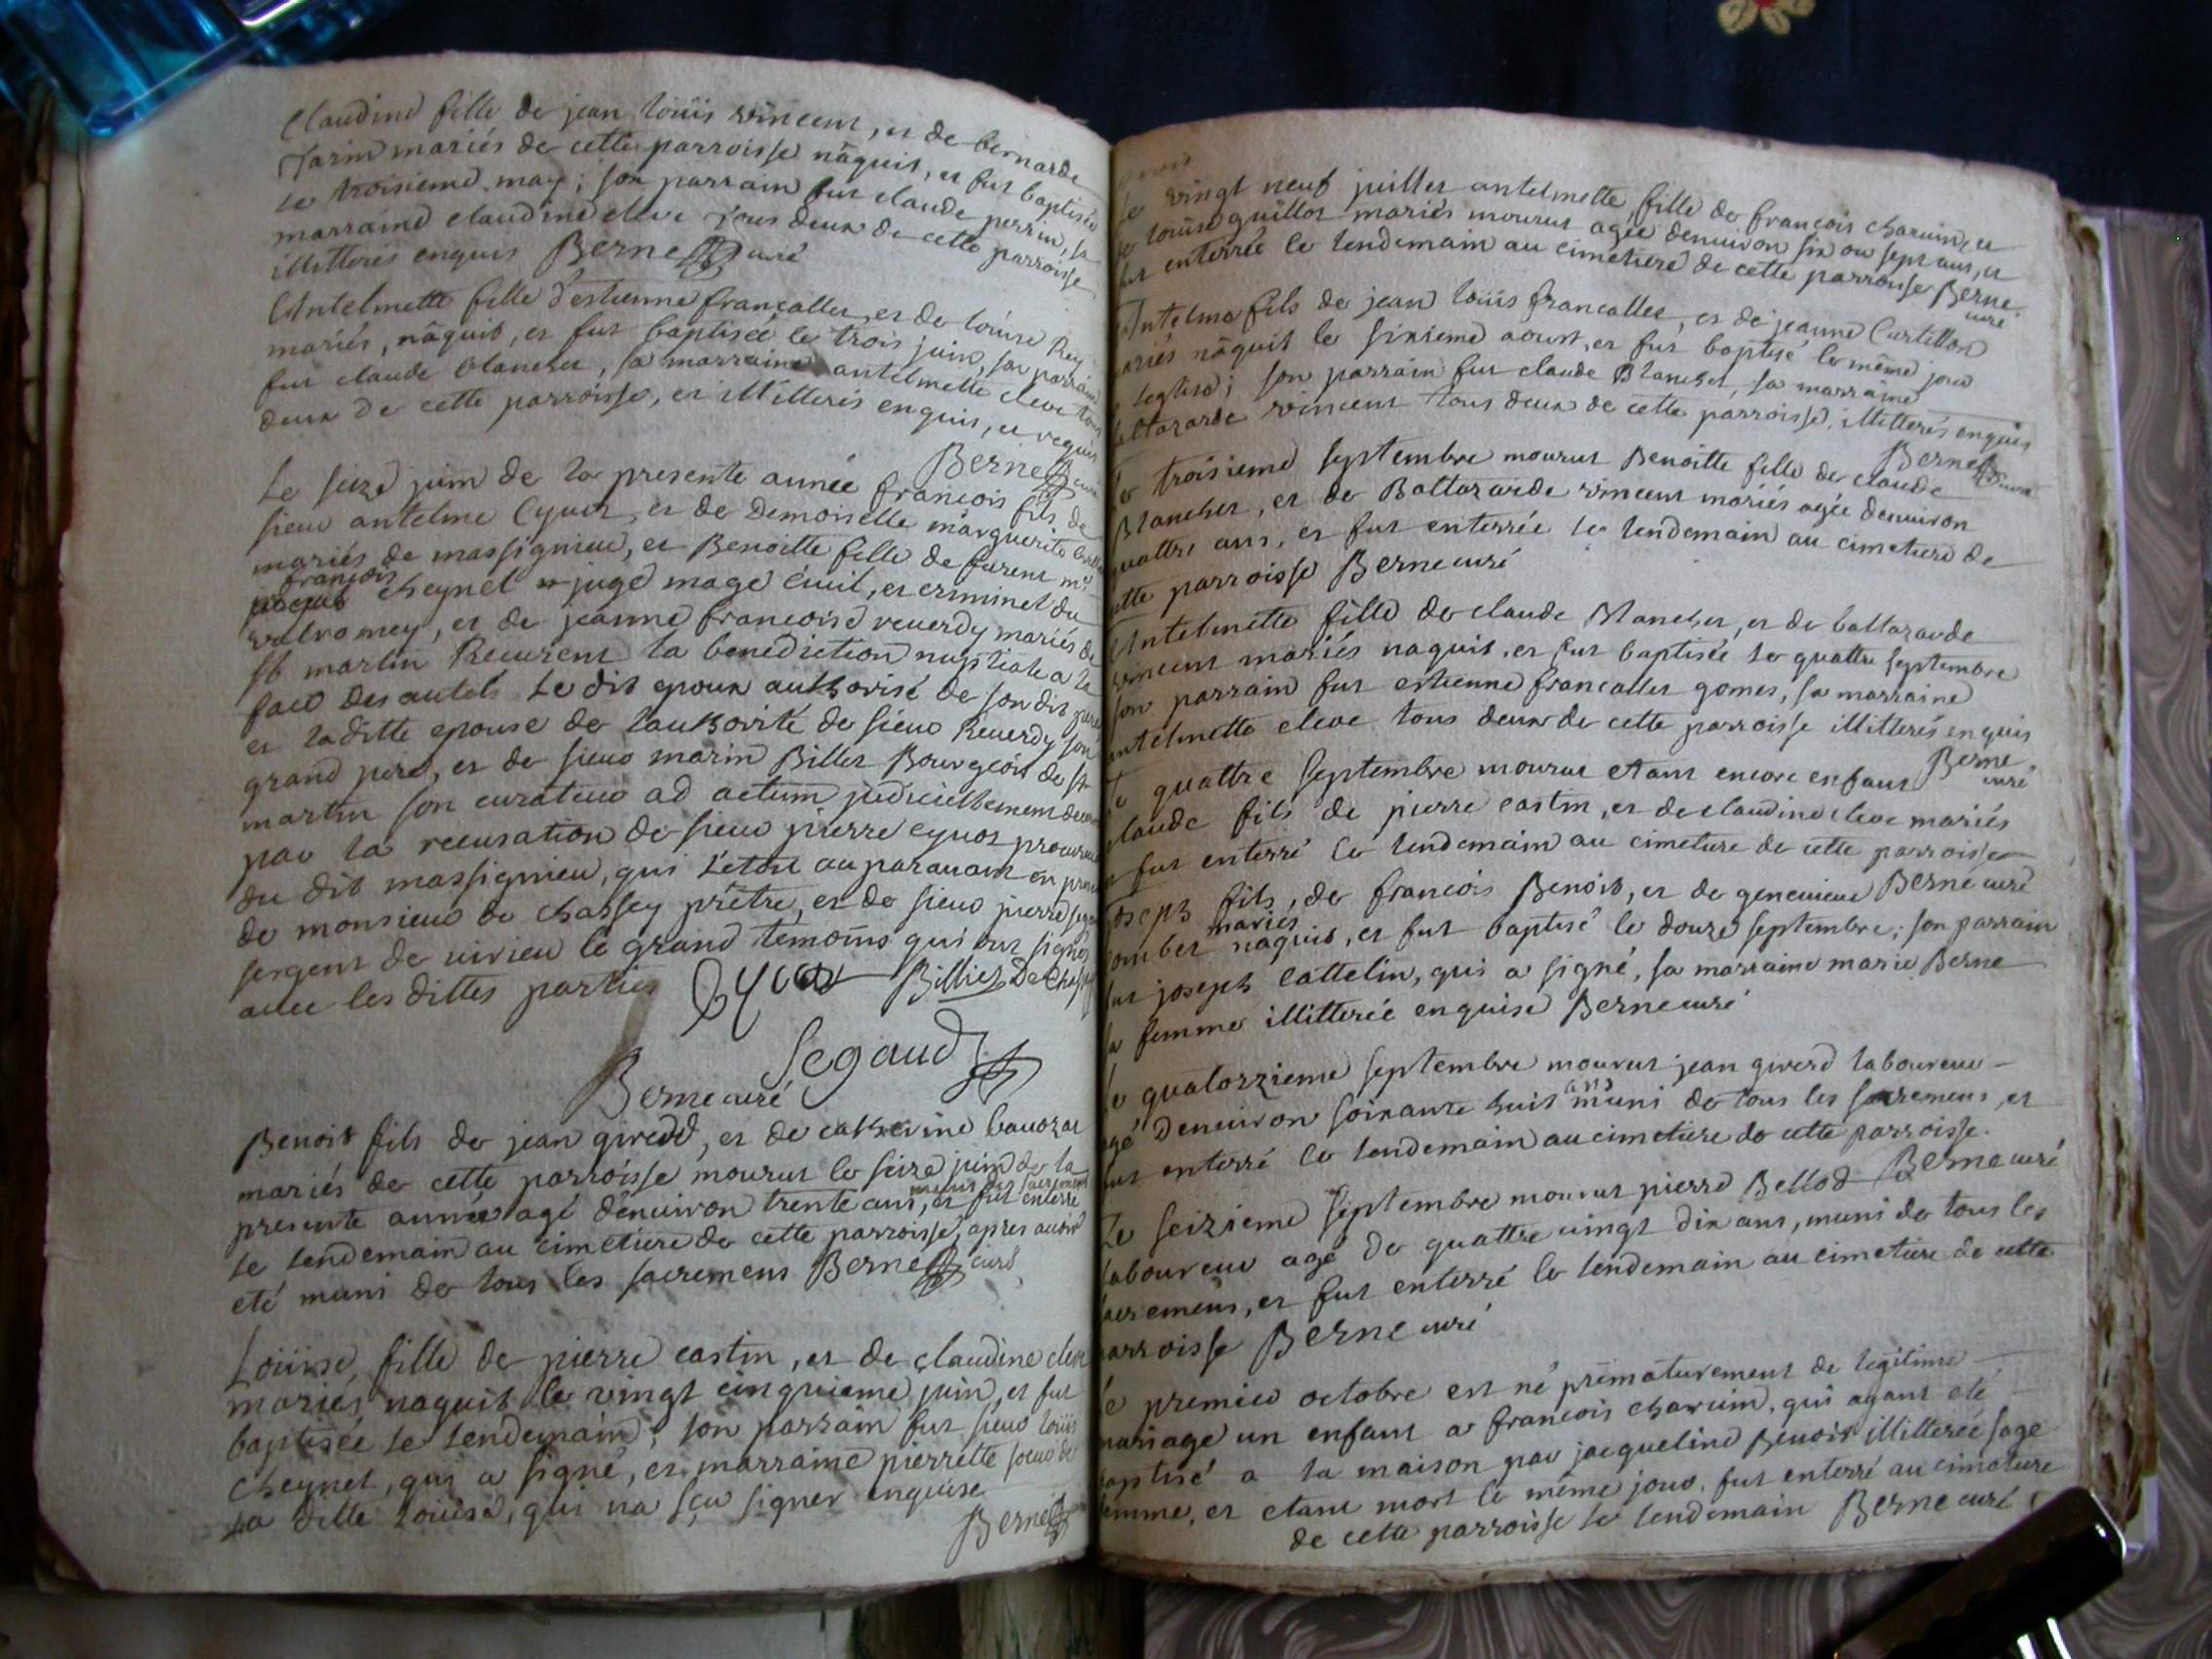 Claudine fille de jean loüis vincent, et de bernarde
Jarin mariés de cette parroisse nâquit, et fut baptisée
le troisieme may; son parrain fut claude perrin, sa
marraine claudine eleve tous deux de cette parroisse
illitterés enquis Berne curé
Antelmette fille d'estienne françallet, et de loüise Rey
mariés, nâquit, et fut baptisée le trois juin, son parrain
fut claude blanchet, sa marraine antelmette eleve tous
deux de cette parroisse, et illitterés enquis, et requis
Berne curé
Le seize juin de la presente année françois fils de
sieur antelme Cyvoct, et de Demoiselle marguerite
mariés de massignieu, et Benoitte fille de furent mr
françois
cheynel juge mage civil, et criminel du
valromey, et de jeanne françoise reverdy mariés de
st martin Recurent la benediction nuptiale a la
face des autels le dit epoux authorisé de son dit pere
et laditte epouse de lauthorité de sieur Reverdy son
grand pere, et de sieur marin Billiet Bourgeois de st
martin son curateur ad actum judiciellement
par la recusation de sieur pierre cyvot procureur
du dit massignieu, qui l'etoit auparavant en
de monsieur de chassey prêtre, et de sieur pierre
sergent de virieu le grand temoins qui ont signés
avec les dittes parties Cyvoct Billiet De Chassey
Segaud
Berne curé
Benoit fils de jean girerd, et de catherine bavozat
mariés de cette parroisse mourut le seize juin de la
presente année agé denviron trente ans, et fut enterré
le lendemain au cimetiere de cette parroisse, apres avoir
eté muni de tous les sacremens Berne curé
Loüise, fille de pierre castin, et de claudine eleve
mariés naquit le vingt cinquieme juin, et fut
baptisée le lendemain; son parrain fut sieur loüis
Cheynel, qui a signé, et marraine pierrette soeur de
la ditte loüise, qui na sçu signer enquise
Berne curé
le vingt neuf juillet antelmette, fille de françois charvin, et
de loüise guillot mariés mourut agée denviron six ou sept ans, et
fut enterrée le lendemain au cimetiere de cette parroisse Berne
curé
Antelme fils de jean loüis francallet, et de jeanne Curtillion
mariés nâquit le sixieme aoust, et fut baptisé le même jour
a leglise; son parrain fut claude Blanchet, sa marraine
baltazarde vincent tous deux de cette parroisse, illitterés enquis
Berne curé
le troisieme septembre mourut Benoitte fille de claude
Blanchet, et de Baltazarde vincent mariés agée denviron
quattre ans, et fut enterrée le lendemain au cimetiere de
cette parroisse Berne curé
Antelmette fille de claude Blanchet, et de baltazarde
vincent mariés naquit, et fut baptisée le quattre septembre
son parrain fut estienne francallet gomet, sa marraine
antelmette eleve tous deux de cette parroisse illitterés enquis
Berne
curé
le quattre septembre mourut etant encore enfant
claude fils de pierre castin, et de claudine eleve mariés
et fut enterré le lendemain au cimetiere de cette parroisse
Berne curé
Joseph fils de françois Benoit, et de genevieve
mariés
Combet naquit, et fut baptisé le douze septembre; son parrain
fut joseph Cattelin, qui a signé, sa marraine marie Berne
sa femme illitterée enquise Berne curé
le quatorzieme septembre mourut jean girerd laboureur
ans
agé denviron soixante huit muni de tous les sacremens, et
fut enterré le lendemain au cimetiere de cette parroisse.
Berne curé
Le seizieme septembre mourut pierre Bellod
laboureur agé de quattre vingt dix ans, muni de tous les
sacremens, et fut enterré le lendemain au cimetiere de cette
parroisse Berne curé
le premier octobre est né prématurement de legitime
mariage un enfant a françois charvin, qui ayant eté
baptisé a la maison par jacqueline Benoit illitterée sage
femme, et etant mort le même jour, fut enterré au cimetiere
de cette parroisse le lendemain Berne curé